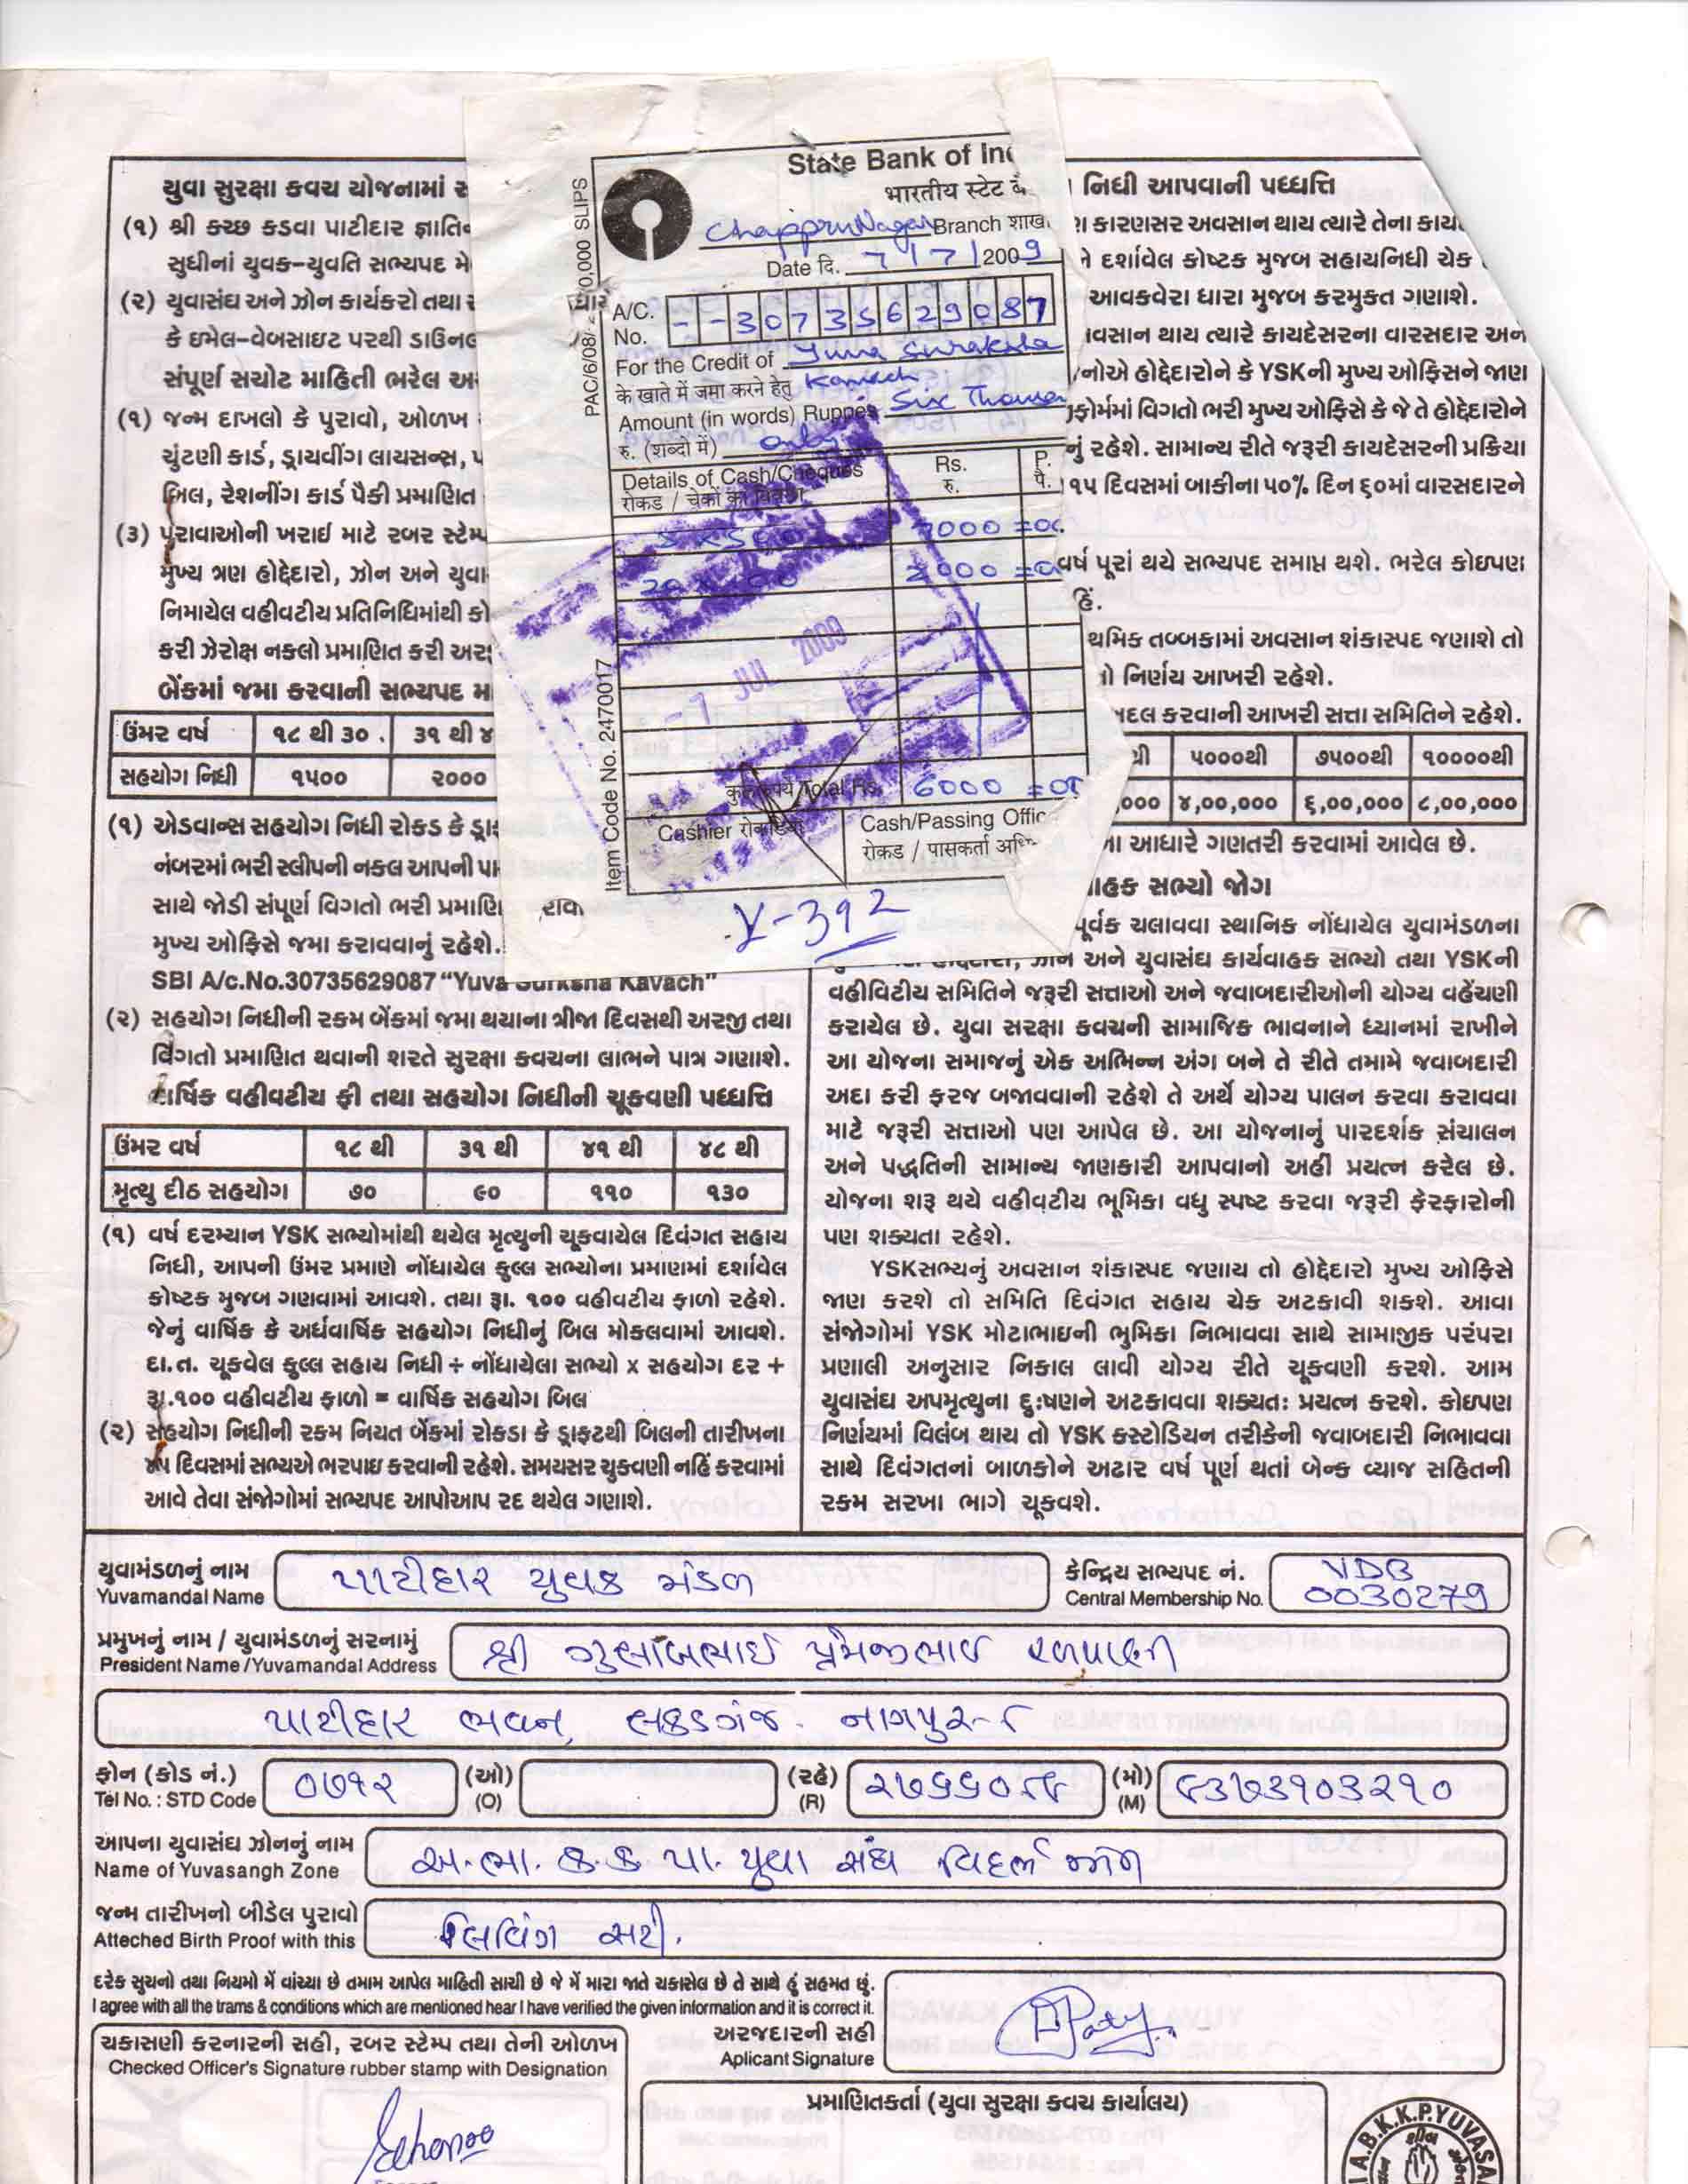 યુવા સુરક્ષા કવચ યોજનામાં
(૧) શ્રી કચ્છ કડવા પાટીદાર જ્ઞાતિ
સુધીનાં યુવક-યુવતિ સભ્યપદ મે
(૨) યુવાસંઘ અને ઝોન કાર્યકરો તથા
કે ઇમેલ-વેબસાઇટ પરથી ડાઉનલ
સંપૂર્ણ સચોટ માહિતી ભરેલ
(૧) જન્મ દાખલો કે પુરાવો, ઓળખ
ચુંટણી કાર્ડ, ડ્રાયવીંગ લાયસન્સ,
બિલ, રેશનીંગ કાર્ડ પૈકી પ્રમાણિત
(૩) પુરાવાઓની ખરાઇ માટે રબર સ્ટેમ્પ
મુખ્ય ત્રણ હોદ્દેદારો, ઝોન અને યુવા
નિમાયેલ વહીવટીય પ્રતિનિધિમાંથી કો
કરી ઝેરોક્ષ નકલો પ્રમાણિત કરી અર
બેંકમાં જમા કરવાની સભ્યપદ
ઉંમર વર્ષ ૧૮ થી ૩૦ ૩૧ થી ૪
સહયોગ નિધી ૧૫૦૦ ૨૦૦૦
(૧) એડવાન્સ સહયોગ નિધી રોકડ કે
નંબરમાં ભરી સ્લીપની નકલ આપની પા
સાથે જોડી સંપૂર્ણ વિગતો ભરી પ્રમાણિ
મુખ્ય ઓફિસે જમા કરાવવાનું રહેશે.
SBI A/c.No.30735629087 “Yuva Surksha Kavach”
(૨) સહયોગ નિધીની રકમ બેંકમાં જમા થયાના ત્રીજા દિવસથી અરજી તથા
વિગતો પ્રમાણિત થવાની શરતે સુરક્ષા કવચના લાભને પાત્ર ગણાશે.
વાર્ષિક વહીવટીય ફી તથા સહયોગ નિધીની ચૂકવણી પધ્ધત્તિ
ઉંમર વર્ષ ૧૮ થી ૩૧ થી ૪૧ થી ૪૮ થી
મૃત્યુ દીઠ સહયોગ ૭૦ ૯૦ ૧૧૦ ૧૩૦
(૧) વર્ષ દરમ્યાન YSK સભ્યોમાંથી થયેલ મૃત્યુની ચૂકવાયેલ દિવંગત સહાય
નિધી, આપની ઉંમર પ્રમાણે નોંધાયેલ કુલ્લ સભ્યોના પ્રમાણમાં દર્શાવેલ
કોષ્ટક મુજબ ગણવામાં આવશે. તથા રૂા. ૧૦૦ વહીવટીય ફાળો રહેશે.
જેનું વાર્ષિક કે અર્ધવાર્ષિક સહયોગ નિધીનું બિલ મોકલવામાં આવશે.
દા.ત. ચૂકવેલ કુલ્લ સહાય નિધી ÷ નોંધાયેલા સભ્યો x સહયોગ દર +
રૂા.૧૦૦ વહીવટીય ફાળો = વાર્ષિક સહયોગ બિલ
(૨) સહયોગ નિધીની રકમ નિયત બેંકમાં રોકડા કે ડ્રાફટથી બિલની તારીખના
૪૫ દિવસમાં સભ્યએ ભરપાઇ કરવાની રહેશે. સમયસર ચુકવણી નહિં કરવામાં
આવે તેવા સંજોગોમાં સભ્યપદ આપોઆપ રદ થયેલ ગણાશે.
PAC/6/08/
SLIPS
State Bank of In
भारतीय स्टेट बै
Chappru Nagar Branch शाख
Date दि. 7/7/2009
A/C. No. - - 30735629087
For the Credit of Yuva Suraksha
के खाते में जमा करने हेतु Kavach
Amount (in words) Rupees Six Thousan
रु. (शब्दों में) only
Details of Cash/Cheques Rs. P.
रोकड / चेकों का विवरण रु. पै.
2000
-7 JUL 2009
Total Rs. 6000
Item Code No. 2470017
Cashier Cash/Passing Offic
रोकड / पासकर्ता
Y-392
નિધી આપવાની પધ્ધત્તિ
કારણસર અવસાન થાય ત્યારે તેના કાય
દર્શાવેલ કોષ્ટક મુજબ સહાયનિધી ચેક
આવકવેરા ધારા મુજબ કરમુક્ત ગણાશે.
વસાન થાય ત્યારે કાયદેસરના વારસદાર અન
નોએ હોદ્દેદારોને કે YSKની મુખ્ય ઓફિસને જાણ
ફોર્મમાં વિગતો ભરી મુખ્ય ઓફિસે કે જે તે હોદ્દેદારોને
નું રહેશે. સામાન્ય રીતે જરૂરી કાયદેસરની પ્રક્રિયા
૧૫ દિવસમાં બાકીના ૫૦% દિન ૬૦માં વારસદારને
વર્ષ પૂરાં થયે સભ્યપદ સમાપ્ત થશે. ભરેલ કોઇપણ
હિં.
થમિક તબ્બકામાં અવસાન શંકાસ્પદ જણાશે તો
નો નિર્ણય આખરી રહેશે.
બદલ કરવાની આખરી સત્તા સમિતિને રહેશે.
થી ૫૦૦૦થી ૭૫૦૦થી ૧૦૦૦૦થી
,૦૦૦ ૪,૦૦,૦૦૦ ૬,૦૦,૦૦૦ ૮,૦૦,૦૦૦
ના આધારે ગણતરી કરવામાં આવેલ છે.
વાહક સભ્યો જોગ
પૂર્વક ચલાવવા સ્થાનિક નોંધાયેલ યુવામંડળના
ઝોન અને યુવાસંઘ કાર્યવાહક સભ્યો તથા YSKની
વહીવિટીય સમિતિને જરૂરી સત્તાઓ અને જવાબદારીઓની યોગ્ય વહેંચણી
કરાયેલ છે. યુવા સરક્ષા કવચની સામાજિક ભાવનાને ધ્યાનમાં રાખીને
આ યોજના સમાજનું એક અભિન્ન અંગ બને તે રીતે તમામે જવાબદારી
અદા કરી ફરજ બજાવવાની રહેશે તે અર્થે યોગ્ય પાલન કરવા કરાવવા
માટે જરૂરી સત્તાઓ પણ આપેલ છે. આ યોજનાનું પારદર્શક સંચાલન
અને પદ્ધતિની સામાન્ય જાણકારી આપવાનો અહીં પ્રયત્ન કરેલ છે.
યોજના શરૂ થયે વહીવટીય ભૂમિકા વધુ સ્પષ્ટ કરવા જરૂરી ફેરફારોની
પણ શક્યતા રહેશે.
YSKસભ્યનું અવસાન શંકાસ્પદ જણાય તો હોદ્દેદારો મુખ્ય ઓફિસે
જાણ કરશે તો સમિતિ દિવંગત સહાય ચેક અટકાવી શકશે. આવા
સંજોગોમાં YSK મોટાભાઇની ભુમિકા નિભાવવા સાથે સામાજીક પરંપરા
પ્રણાલી અનુસાર નિકાલ લાવી યોગ્ય રીતે ચૂકવણી કરશે. આમ
યુવાસંઘ અપમૃત્યુના દુઃષણને અટકાવવા શક્યતઃ પ્રયત્ન કરશે. કોઇપણ
નિર્ણયમાં વિલંબ થાય તો YSK કસ્ટોડિયન તરીકેની જવાબદારી નિભાવવા
સાથે દિવંગતનાં બાળકોને અઢાર વર્ષ પૂર્ણ થતાં બેન્ક વ્યાજ સહિતની
રકમ સરખા ભાગે ચૂકવશે.
યુવામંડળનું નામ પાટીદાર યુવક મંડળ કેન્દ્રિય સભ્યપદ નં. VDB
Yuvamandal Name Central Membership No. 0030279
પ્રમુખનું નામ / યુવામંડળનું સરનામું શ્રી ગુલાબભાઈ પ્રેમજીભાઈ
President Name /Yuvamandal Address
પાટીદાર ભવન, લકડગંજ. નાગપુર-૮
ફોન (કોડ નં.) ૦૭૧૨ (ઓ) (રહે) ૨૭૬૬૦૮૬ (મો) ૯૩૭૩૧૦૩૨૧૦
Tel No. : STD Code (O) (R) (M)
આપના યુવાસંઘ ઝોનનું નામ અ.ભા. ક.ક. પા. યુવા સંઘ વિદર્ભ ઝોન
Name of Yuvasangh Zone
જન્મ તારીખનો બીડેલ પુરાવો લિવિંગ સર્ટી.
Atteched Birth Proof with this
દરેક સુચનો તથા નિયમો મેં વાંચ્યા છે તમામ આપેલ માહિતી સાચી છે જે મેં મારા જાતે ચકાસેલ છે તે સાથે હું સહમત છું.
I agree with all the trams & conditions which are mentioned hear I have verified the given information and it is correct it.
અરજદારની સહી
Aplicant Signature
ચકાસણી કરનારની સહી, રબર સ્ટેમ્પ તથા તેની ઓળખ
Checked Officer's Signature rubber stamp with Designation
પ્રમાણિતકર્તા (યુવા સુરક્ષા કવચ કાર્યાલય)
A.B.K.K.P.YUVASA